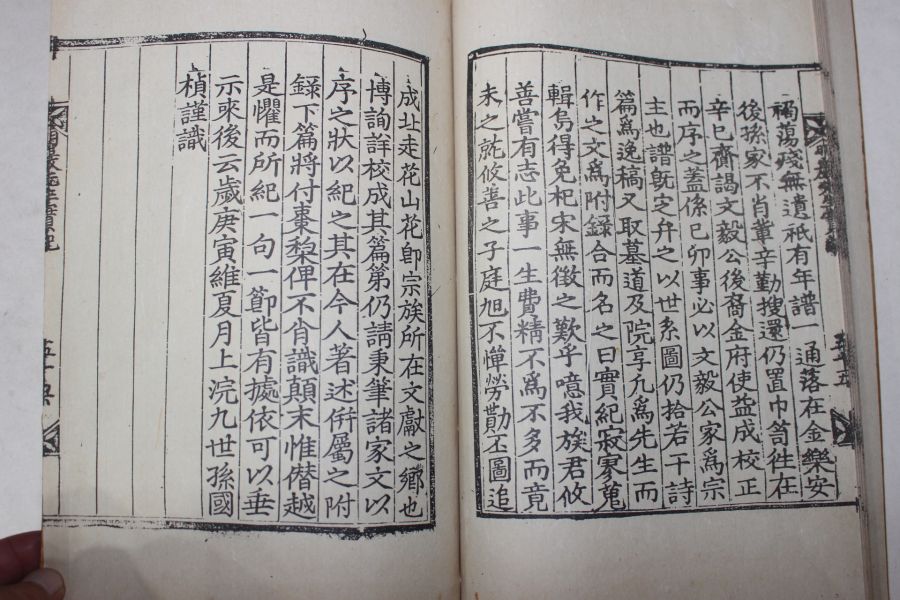 禍蕩殘無遺祇有年譜一通落在金樂安
後孫家不肖輩辛勤搜還仍置巾笥徃在
辛巳齋謁文毅公後裔金府使益成校正
而序之蓋係己卯事必以文毅公家爲宗
主也譜旣㝎弁之以世系圖仍拾若干詩
篇爲逸稿又取墓道及院享凡爲先生而
作之文爲附録合而名之曰實紀寂寥蒐
輯烏得免杞宋無徵之歎乎噫我族君攸
善嘗有志此事一生費精不爲不多而竟
未之就攸善之子庭旭不憚勞勩丕圖追
成址走花山花卽宗族所在文獻之鄉也
博詢詳校成其篇第仍請秉筆諸家文以
序之狀以紀之其在今人著述倂屬之附
録下篇將付棗棃俾不肖識顛末惟僭越
是懼而所紀一句一節皆有據依可以垂
示來後云歲庚寅維夏月上浣九世孫國
楨謹識